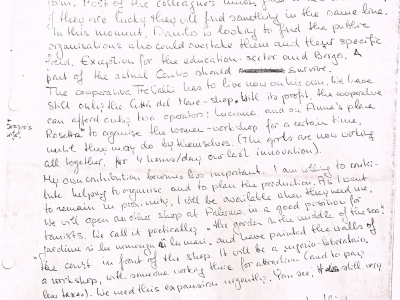 farm. Most of the colleagues
if they are lucky they will find something in the same line.
In this moment, Danilo is looking to find the public
organisations who could overtake them and their specific
field. Exception for the education-sector and Borgo. A
part of the actual Centro should survive.
The cooperative Tre has to live now on his own. We have
still only the Città del Mare-shop. With its profit, the cooperative
can afford only two operators: Luciano and on Anna's place
Rosetta* to organise the women-workshop for a certain time,
* "
wife."
until they may do by themselves. (The girls are now working
all together, for 4 hours/day our last innovation).
My own contribution becomes less important. I am willing to contri-
bute helping to organise and to plan the production. As I want
to remain in proximity, I will be available when they need me.
We will open another shop at Palermo, in a good position for
tourists. We call it poetically "the garden in the middle of the sea"
giardino in mezzo al mare, and have painted the walls of
the court in front of the shop. It will be a negozio-laboratorio,
a workshop, with someone working there for attraction (and to pay
less taxes). We need this expansion urgently. You see, it is still very